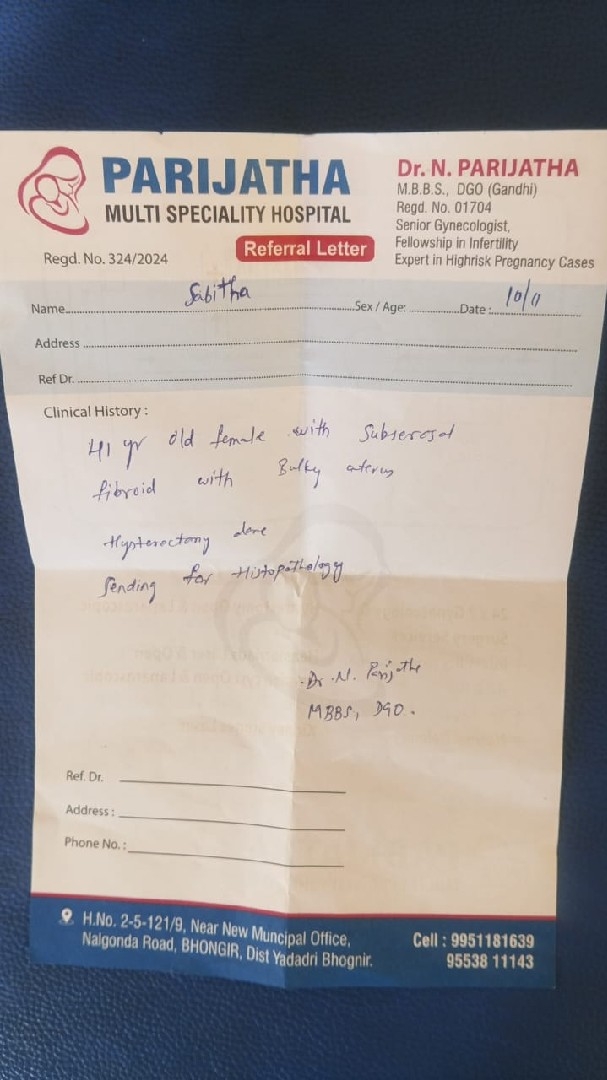 PARIJATHA
MULTI SPECIALITY HOSPITAL
Regd. No. 324/2024
Referral Letter
Dr. N. PARIJATHA
M.B.B.S., DGO (Gandhi)
Regd. No. 01704
Senior Gynecologist,
Fellowship in Infertility
Expert in Highrisk Pregnancy Cases
Name Sabitha Sex / Age: Date : 10/11
Address
Ref Dr.
Clinical History :
41 yr old female with Subserosal
fibroid with Bulky uterus
Hysterectomy done
Sending for Histopathology
Dr. N. Parijatha
MBBS, DGO.
Ref. Dr.
Address :
Phone No. :
H.No. 2-5-121/9, Near New Muncipal Office,
Nalgonda Road, BHONGIR, Dist Yadadri Bhognir.
Cell : 9951181639
95538 11143